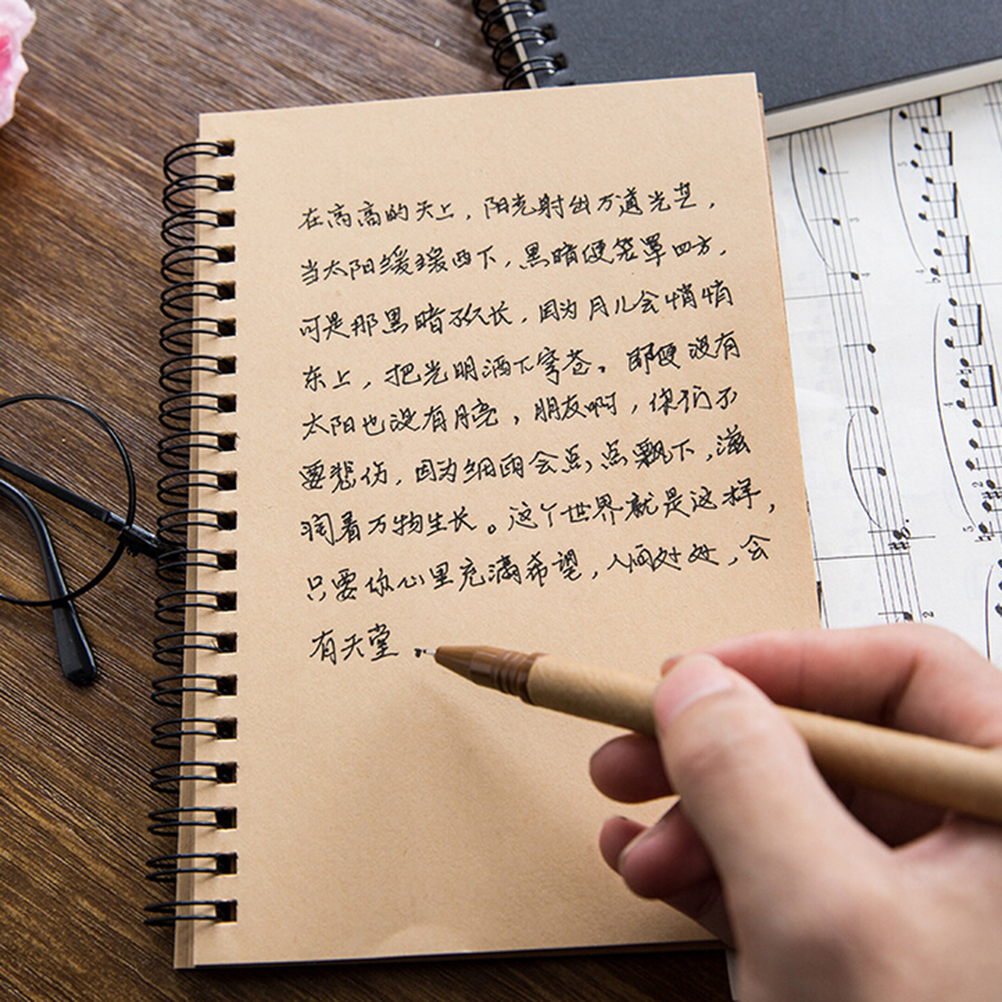 在高高的天上，阳光射出万道光芒，
当太阳缓缓西下，黑暗便笼罩四方，
可是那黑暗不久长，因为月儿会悄悄
东上，把光明洒下穹苍。即便没有
太阳也没有月亮，朋友啊，你们不
要悲伤，因为细雨会点点飘下，滋
润着万物生长。这个世界就是这样，
只要你心里充满希望，人间处处，会
有天堂